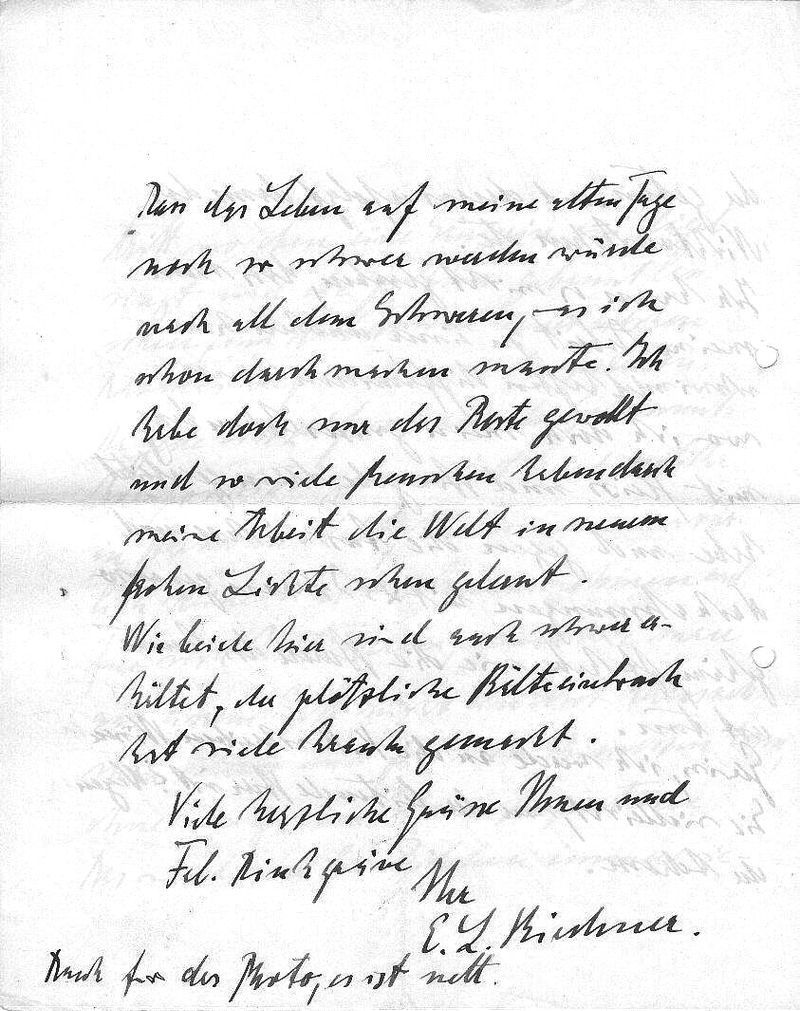 Dass das Leben auf meine alten Tage
noch so schwer werden würde
nach all dem Schweren, was ich
schon durchmachen musste. Ich
habe doch nur das Beste gewollt
und so viele Menschen haben durch
meine Arbeit die Welt in neuem
frohen Lichte sehen gelernt.
Wir beide hier sind auch schwer er-
kältet, der plötzliche Kälteeinbruch
hat viele krank gemacht.
Viele herzliche Grüsse Ihnen und
Frl.
Ihr
E. L. Kirchner.
Dank für das Photo, es ist nett.